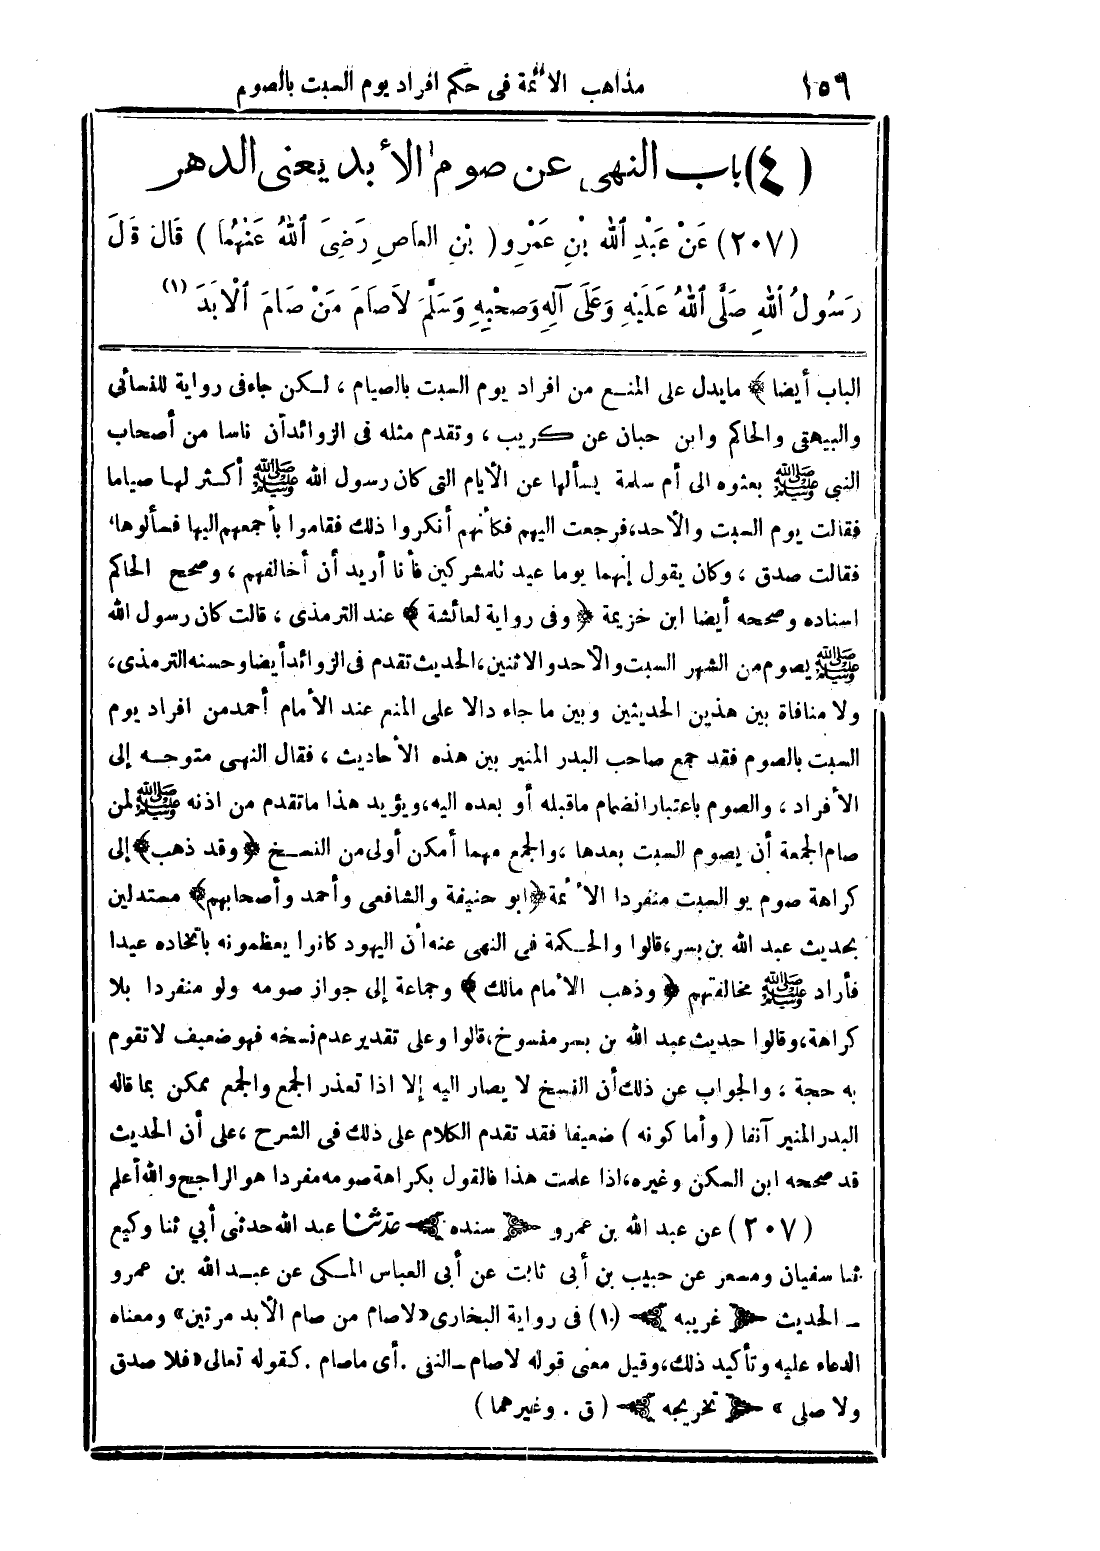 ١٥٩ مذاهب الأئمة في حكم افراد يوم السبت بالصوم
(٤) باب النهى عن صوم الأبد يعنى الدهر
(٢٠٧) عَنْ عَبْدِ اللهِ بْنِ عَمْرٍو (بْنِ العاصِ رَضِىَ اللهُ عَنْهُمَا) قَالَ قَلَ
رَسُولُ اللهِ صَلَّى اللهُ عَلَيْهِ وَعَلَى آلِهِ وَصَحْبِهِ وَسَلَّمَ لَاصَامَ مَنْ صَامَ الْأَبَدَ (١)
الباب أيضا﴾ مايدل على المنع من افراد يوم السبت بالصيام ، لكن جاء فى رواية للنسائى
والبيهقى والحاكم وابن حبان عن كريب ، وتقدم مثله فى الزوائد أن ناسا من أصحاب
النبي ﷺ بعثوه الى أم سلمة يسألها عن الأيام التى كان رسول الله ﷺ أكثر لها صياما
فقالت يوم السبت والأحد،فرجعت اليهم فكأنهم أنكروا ذلك فقاموا بأجمعهم اليها فسألوها،
فقالت صدق ، وكان يقول إنهما يوما عيد للمشركين فأنا أريد أن أخالفهم ، وصحح الحاكم
اسناده وصححه أيضا ابن خزيمة ﴿وفى رواية لعائشة﴾ عند الترمذى ، قالت كان رسول الله
ﷺ يصوم من الشهر السبت والأحد والاثنين،الحديث تقدم فى الزوائد أيضا وحسنه الترمذى،
ولا منافاة بين هذين الحديثين وبين ما جاء دالا على المنع عند الأمام أحمد من افراد يوم
السبت بالصوم فقد جمع صاحب البدر المنير بين هذه الأحاديث ، فقال النهى متوجه إلى
الأفراد ، والصوم باعتبار انضمام ماقبله أو بعده اليه،ويؤيد هذا ماتقدم من اذنه ﷺ لمن
صام الجمعة أن يصوم السبت بعدها ،والجمع مهما أمكن أولى من النسخ ﴿وقد ذهب﴾ إلى
كراهة صوم يو السبت منفردا الأئمة ﴿ابو حنيفة والشافعى وأحمد وأصحابهم﴾ مستدلين
بحديث عبد الله بن بسر،قالوا والحكمة فى النهى عنه أن اليهود كانوا يعظمونه باتخاذه عيدا
فأراد ﷺ مخالفتهم ﴿وذهب الأمام مالك﴾ وجماعة إلى جواز صومه ولو منفردا بلا
كراهة،وقالوا حديث عبد الله بن بسر منسوخ،قالوا وعلى تقدير عدم نسخه فهو ضعيف لا تقوم
به حجة ، والجواب عن ذلك أن النسخ لا يصار اليه إلا اذا تعذر الجمع والجمع ممكن بما قاله
البدر المنير آنفا (وأما كونه) ضعيفا فقد تقدم الكلام على ذلك فى الشرح ،على أن الحديث
قد صححه ابن السكن وغيره،اذا علمت هذا فالقول بكراهة صومه مفردا هو الراجح والله أعلم
(٢٠٧) عن عبد الله بن عمرو ﴿سنده﴾ حدثنا عبد الله حدثنى أبي ثنا وكيع
ثنا سفيان ومسعر عن حبيب بن أبى ثابت عن أبى العباس المكى عن عبد الله بن عمرو
ـ الحديث ﴿غريبه﴾ (١) فى رواية البخارى «لاصام من صام الأبد مرتين» ومعناه
الدعاء عليه وتأكيد ذلك،وقيل معنى قوله لاصام ـ النفى . أى ماصام . كقوله تعالى «فلا صدق
ولا صلى » ﴿تخريجه﴾ (ق . وغيرهما)